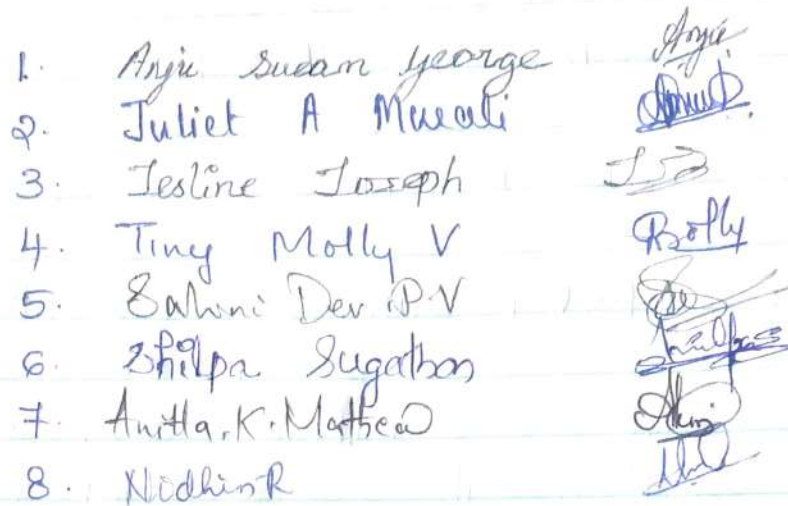 1. Anju Susan George Anju
2. Juliet A Murali
3. Jesline Joseph
4. Tiny Molly V
5. Sahini Dev P.V
6. Shilpa Sugathan
7. Anitta.K.Mathew
8. Nidhin R